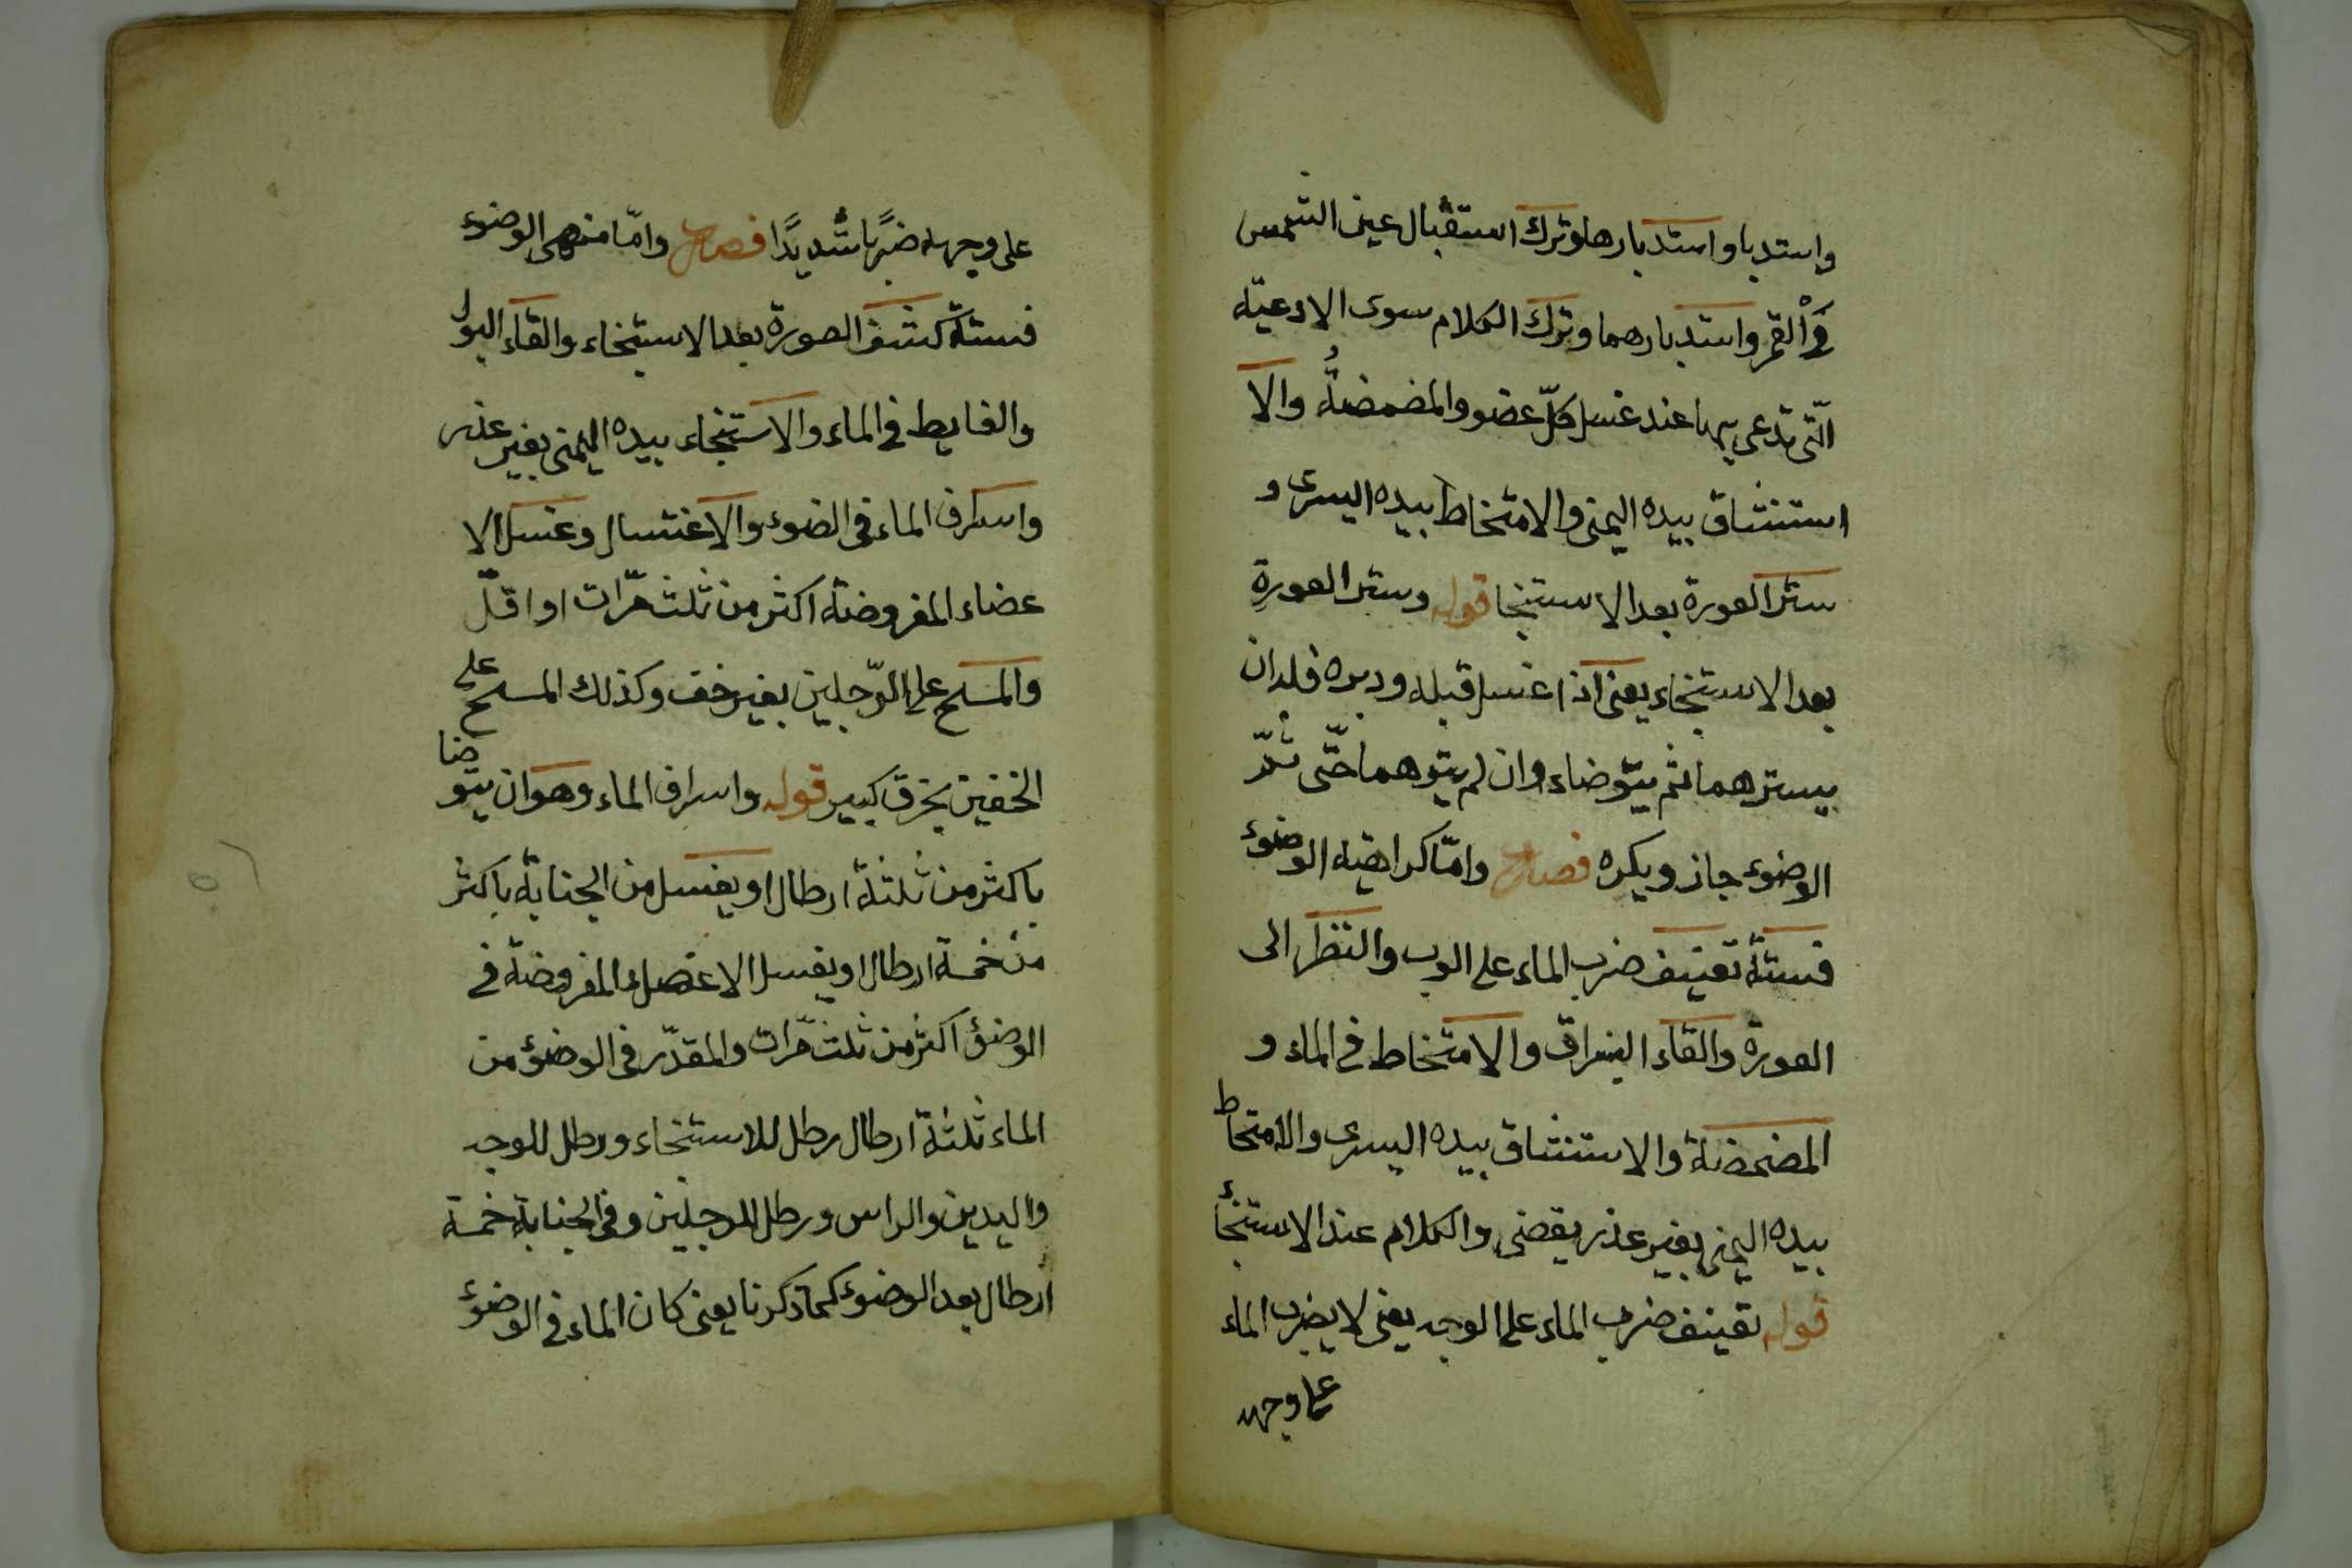 واستدبا واستدبارها وترك استقبال عين الشمس
والقمر واستدبارهما وترك الكلام سوى الادعية
الّتى تدعى بها عند غسل كلّ عضو والمضمضة والا
استنشاق بيده اليمنى والامتخاط بيده اليسرى و
ستر العورة بعد الاستنجا قوله وستر العورة
بعد الاستنجاء يعنى اذا غسل قبله ودبره فلد ان
يسترهما ثم يتوضاء وان لم يتوهما حتّى
الوضوء جاز ويكره فصل وامّا كراهية الوضوء
فستة تعنيف ضرب الماء على الوب والنظر الى
العورة والقاء البزاق والامتخاط فى الماء و
المضمضة والاستنشاق بيده اليسرى والامتخاط
بيده اليمنى بغير عذر يقضى والكلام عند الاستنجأ
قوله تعنيف ضرب الماء على الوجه يعنى لا يضرب الماء
على وجهه
على وجهه ضربًا شديدًا فصل وامّا منهى الوضوء
فستة كشف العورة بعد الاستنجاء والقاء البول
والغايط فى الماء والاستنجاء بيده اليمنى بغير عذر
واسراف الماء فى الضوء والاغتسال وغسل الا
عضاء المفروضة اكثر من ثلث مرّات او اقلّ
والمسح على الرّجلين بغير خف وكذلك المسح على
الخفين بخرق كبير قوله واسراف الماء وهو ان يتوضا
باكثر من ثلثة ارطال او يغسل من الجنابة باكثر
من خمسة ارطال او يغسل الاعضاء المفروضة فى
الوضؤ اكثر من ثلث مرّات والمقدّر فى الوضؤ من
الماء ثلثة ارطال رطل للاستنجاء ورطل للوجه
واليدين والراس ورطل للرجلين وفى الجنابة خمسة
ارطال بعد الوضوء كما ذكرنا يعنى كان الماء فى الوضؤ